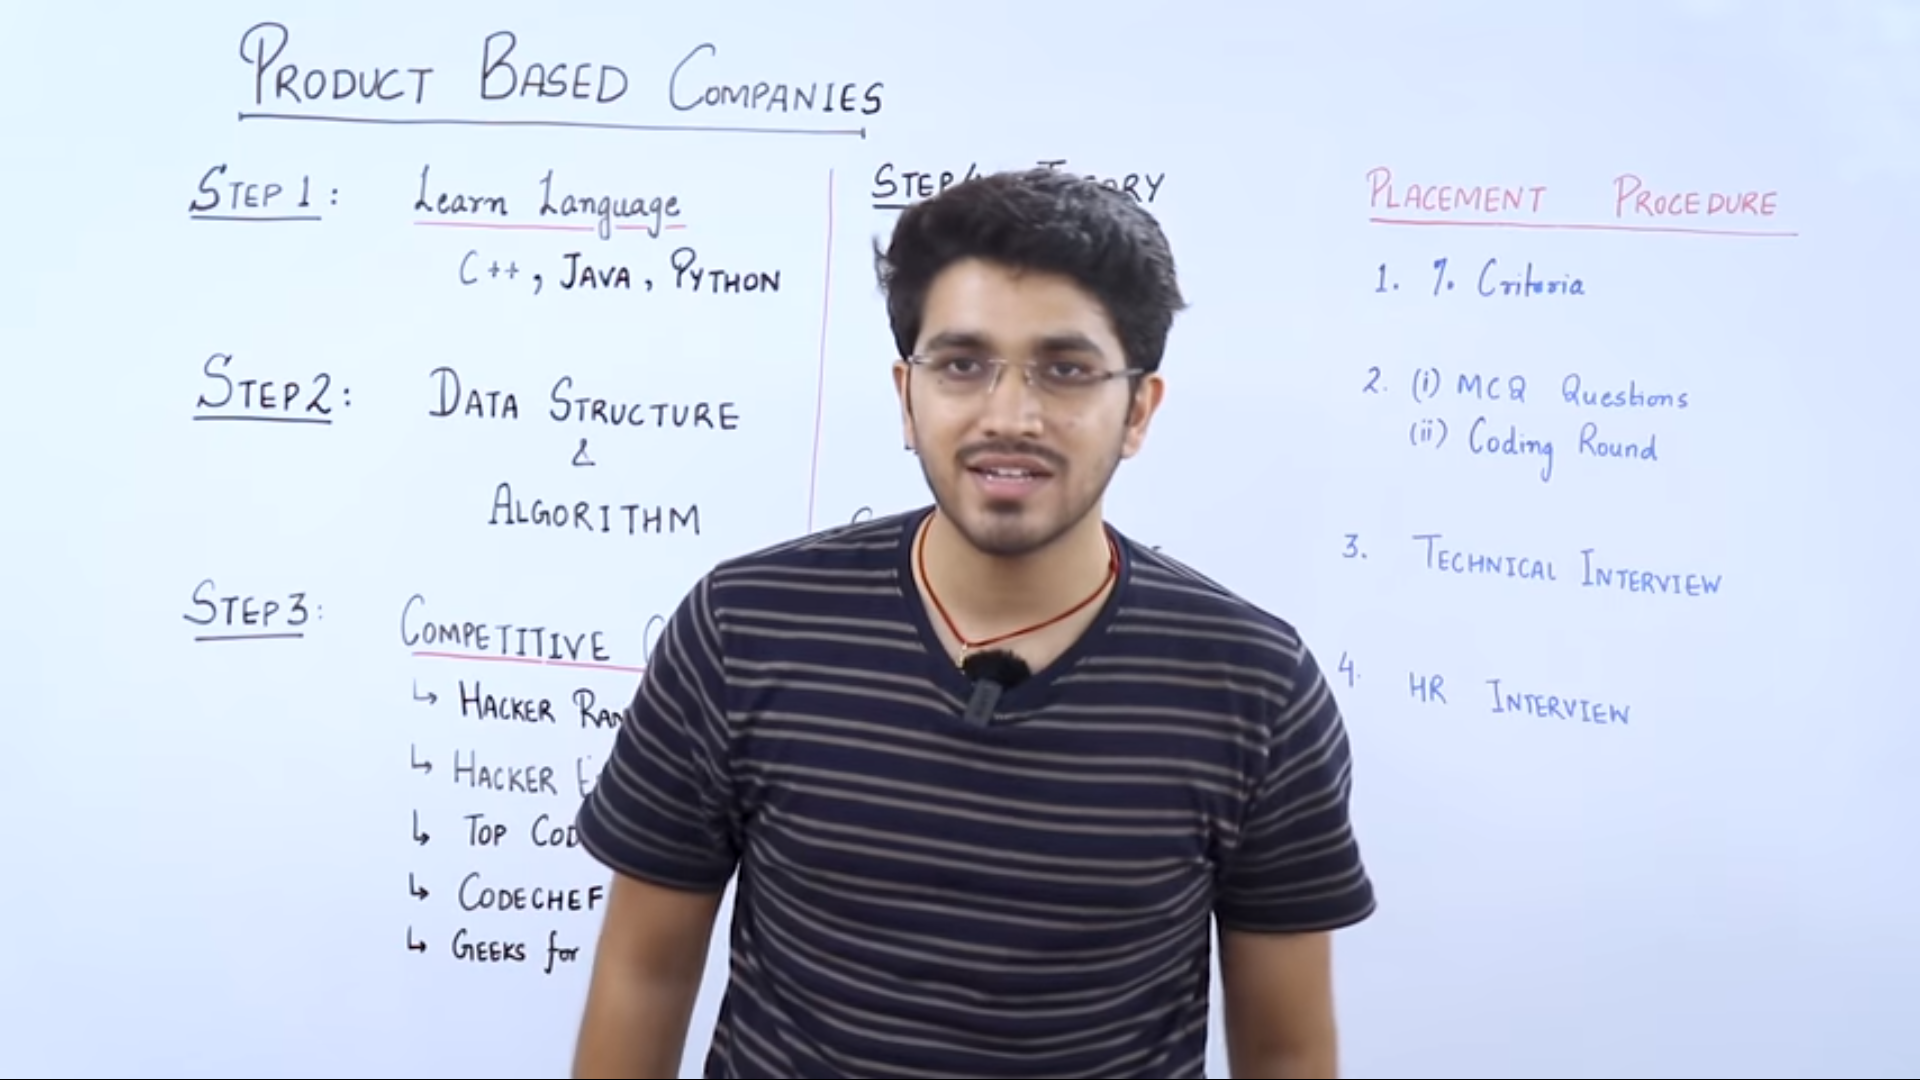 PRODUCT BASED COMPANIES
STEP 1: Learn Language
C++, JAVA, PYTHON
STEP 2: DATA STRUCTURE
&
ALGORITHM
STEP 3: COMPETITIVE
↳ HACKER
↳ HACKER
↳ TOP
↳ CODECHEF
↳ GEEKS for
STEP
PLACEMENT PROCEDURE
1. % Criteria
2. (i) MCQ Questions
(ii) Coding Round
3. TECHNICAL INTERVIEW
4. HR INTERVIEW